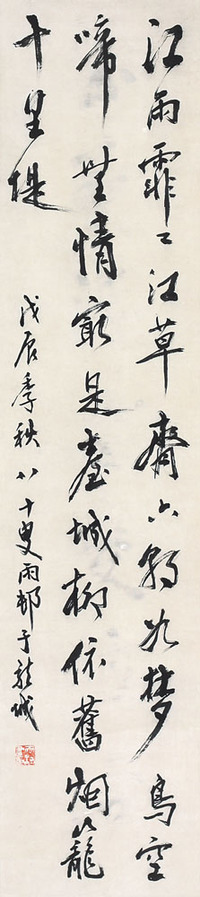 江雨霏〻江草齊六朝如夢鳥空
啼無情最是臺城柳依舊烟籠
十里堤
戊辰季秋八十叟雨邨于龍城